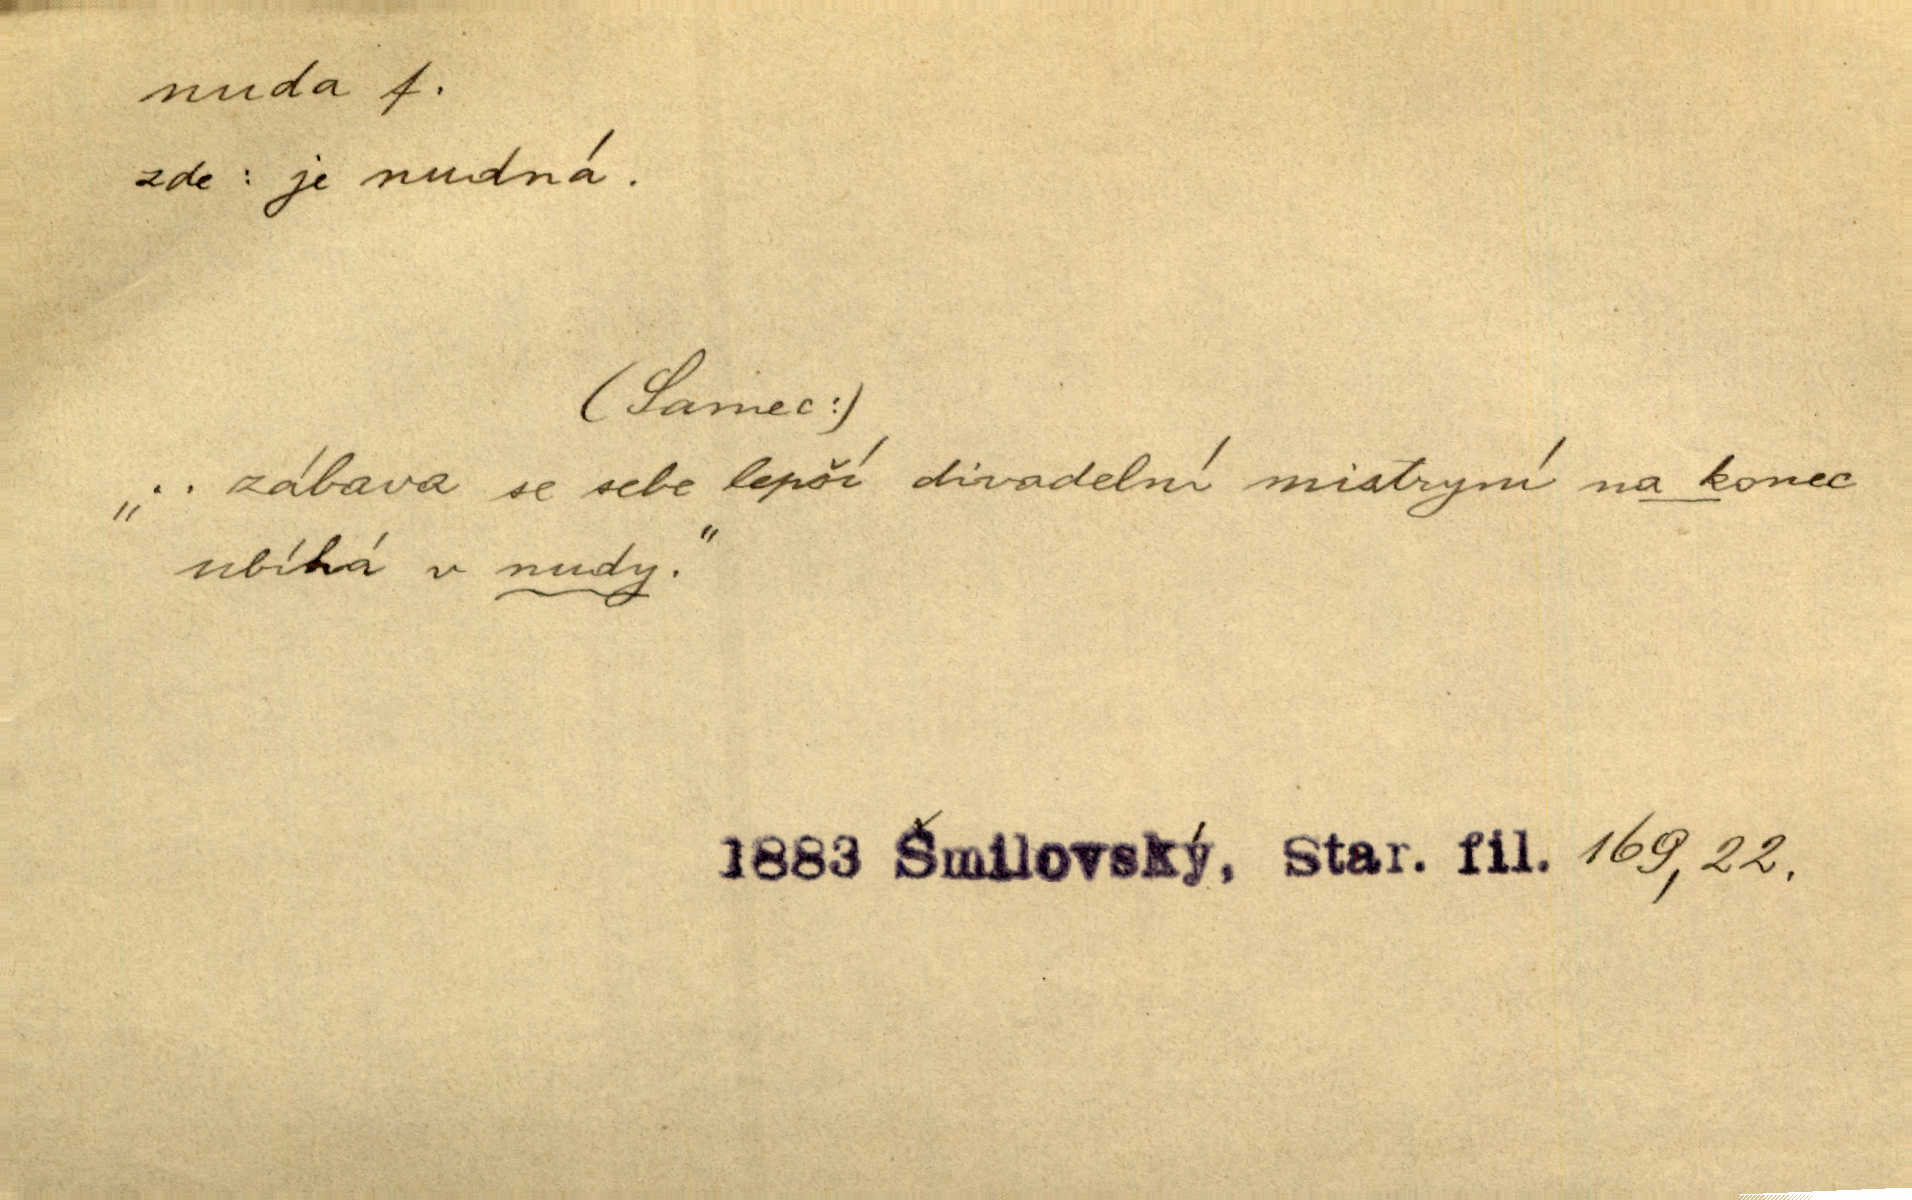 nuda f.
zde: je nudná.
(Samec:)
„.. zábava se sebe lepší divadelní mistryní na konec
ubíhá v nudy."
1883 Šmilovský, Star. fil. 169, 22.